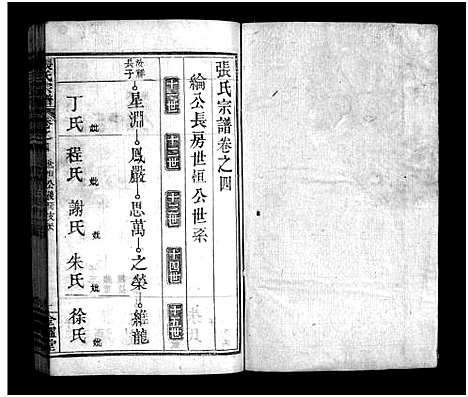 張氏宗譜卷之四
綸公長房世桓公世系
十一世 十二世 十三世 十四世 十五世
長子
星淵 鳳嚴 思萬 之榮 維龍
丁氏 程氏 謝氏 朱氏 徐氏